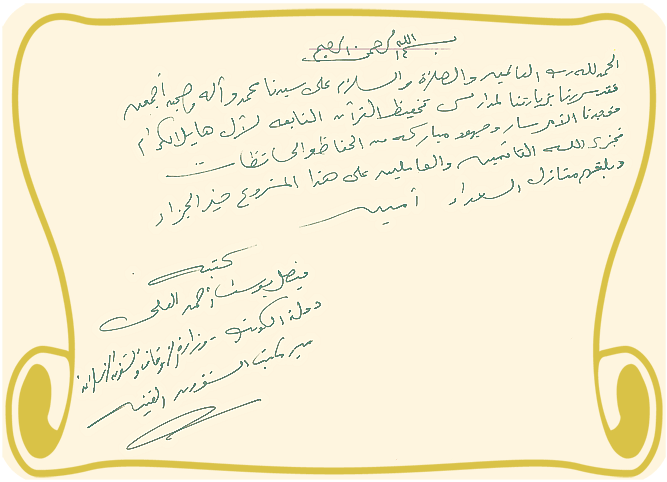 بسم الله الرحمن الرحيم
الحمد لله رب العالمين والصلاة والسلام على سيدنا محمد وآله وصحبه أجمعين
فقد سررنا بزيارتنا لمدارس تحفيظ القرآن التابعة لآل هايل الكرام
فوجدنا الأمر سار وجهود مباركة من الحفاظ والحافظات
فجزى الله القائمين والعاملين على هذا المشروع خير الجزاء
وبلغهم منازل السعداء آمين
كتبه
فيصل يوسف أحمد العلي
دولة الكويت - وزارة الأوقاف والشؤون الإسلامية
مدير مكتب الشؤون الفنية